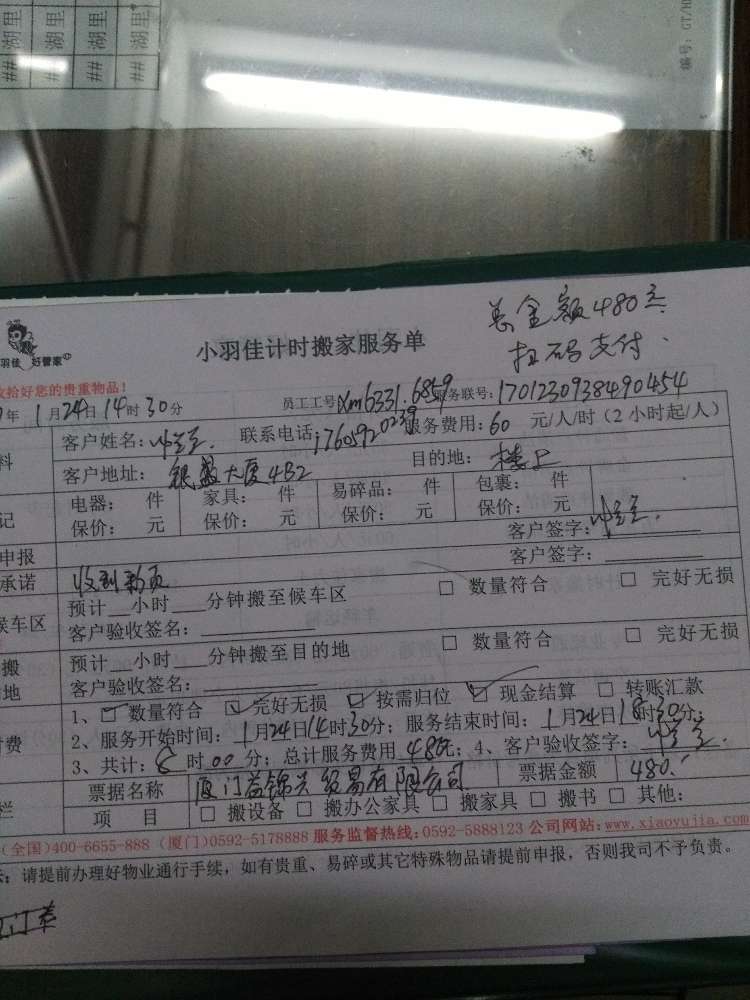 ## 湖里
## 湖里
## 湖里
## 湖里
编号: GT/H
总金额480元
扫码支付.
羽佳 好管家
小羽佳计时搬家服务单
收拾好您的贵重物品!
年1月24日14时30分 员工工号 xm6331.6859 服务联号: 1701230938490454
客户姓名: 联系电话: 17605920239 服务费用: 60 元/人/时(2小时起/人)
客户地址: 银盛大厦4B2 目的地: 楼上
电器: 件 家具: 件 易碎品: 件 包裹: 件
保价: 元 保价: 元 保价: 元 保价: 元
客户签字:
申报 客户签字:
承诺
预计 小时 分钟搬至候车区 □ 数量符合 □ 完好无损
候车区 客户验收签名:
搬 预计 小时 分钟搬至目的地 □ 数量符合 □ 完好无损
地 客户验收签名:
1、☑ 数量符合 ☑ 完好无损 ☑ 按需归位 ☑ 现金结算 □ 转账汇款
费 2、服务开始时间: 1月24日14时30分; 服务结束时间: 1月24日18时30分;
3、共计: 8时00分; 总计服务费用 480元; 4、客户验收签字:
栏 票据名称 厦门益锦兴贸易有限公司 票据金额 480.
项 目 □ 搬设备 □ 搬办公家具 □ 搬家具 □ 搬书 □ 其他:
(全国)400-6655-888 (厦门)0592-5178888 服务监督热线:0592-5888123 公司网站:www.xiaoyujia.com
: 请提前办理好物业通行手续,如有贵重、易碎或其它特殊物品请提前申报,否则我司不予负责。